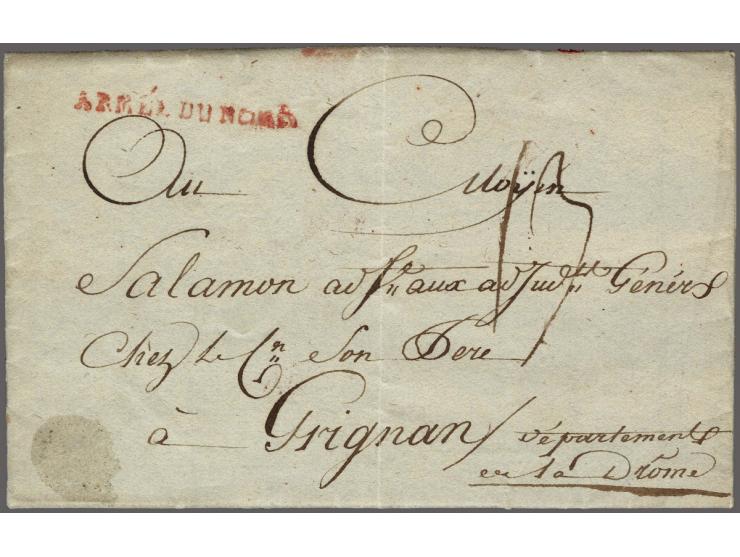 ARMÉE DU NORD
Au Citoÿen
13
Salamon adj.ᵗ aux adjud.ᵗˢ Génér
Chez le C.ⁿ Son Pere
à Grignan / Département
de la Drôme